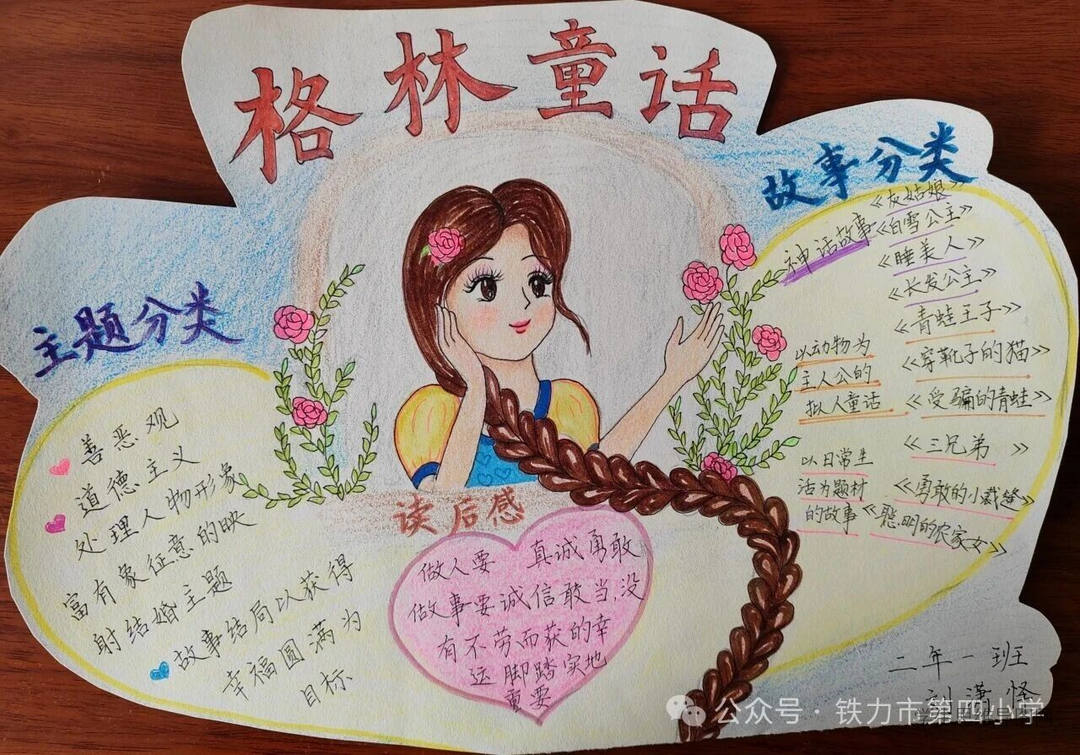 格林童话
故事分类
神话故事
《灰姑娘》
《白雪公主》
《睡美人》
《长发公主》
《青蛙王子》
以动物为
主人公的
拟人童话
《穿靴子的猫》
《受骗的青蛙》
以日常生
活为题材
的故事
《三兄弟》
《勇敢的小裁缝》
《聪明的农家女》
主题分类
善恶观
道德主义
处理人物形象
富有象征意的映
射结婚主题
故事结局以获得
幸福圆满为
目标
读后感
做人要 真诚勇敢
做事要诚信敢当,没
有不劳而获的幸
运 脚踏实地
重要
二年一班
刘潇
公众号·铁力市第四小学